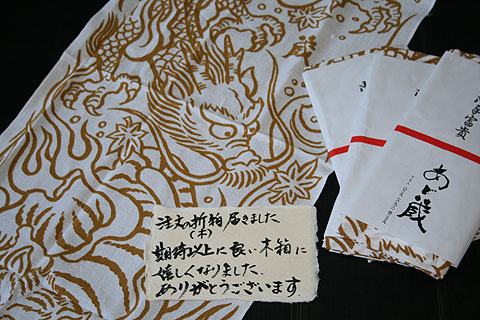 注文の折箱届きました
(木)
期待以上に良い木箱に
嬉しくなりました、
ありがとうございます
富貴
あど蔵